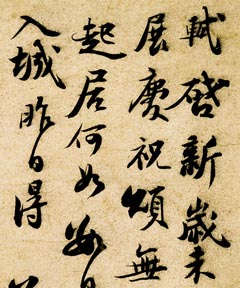 軾啓新歲未
展慶祝頌無
起居何如數
入城昨日得